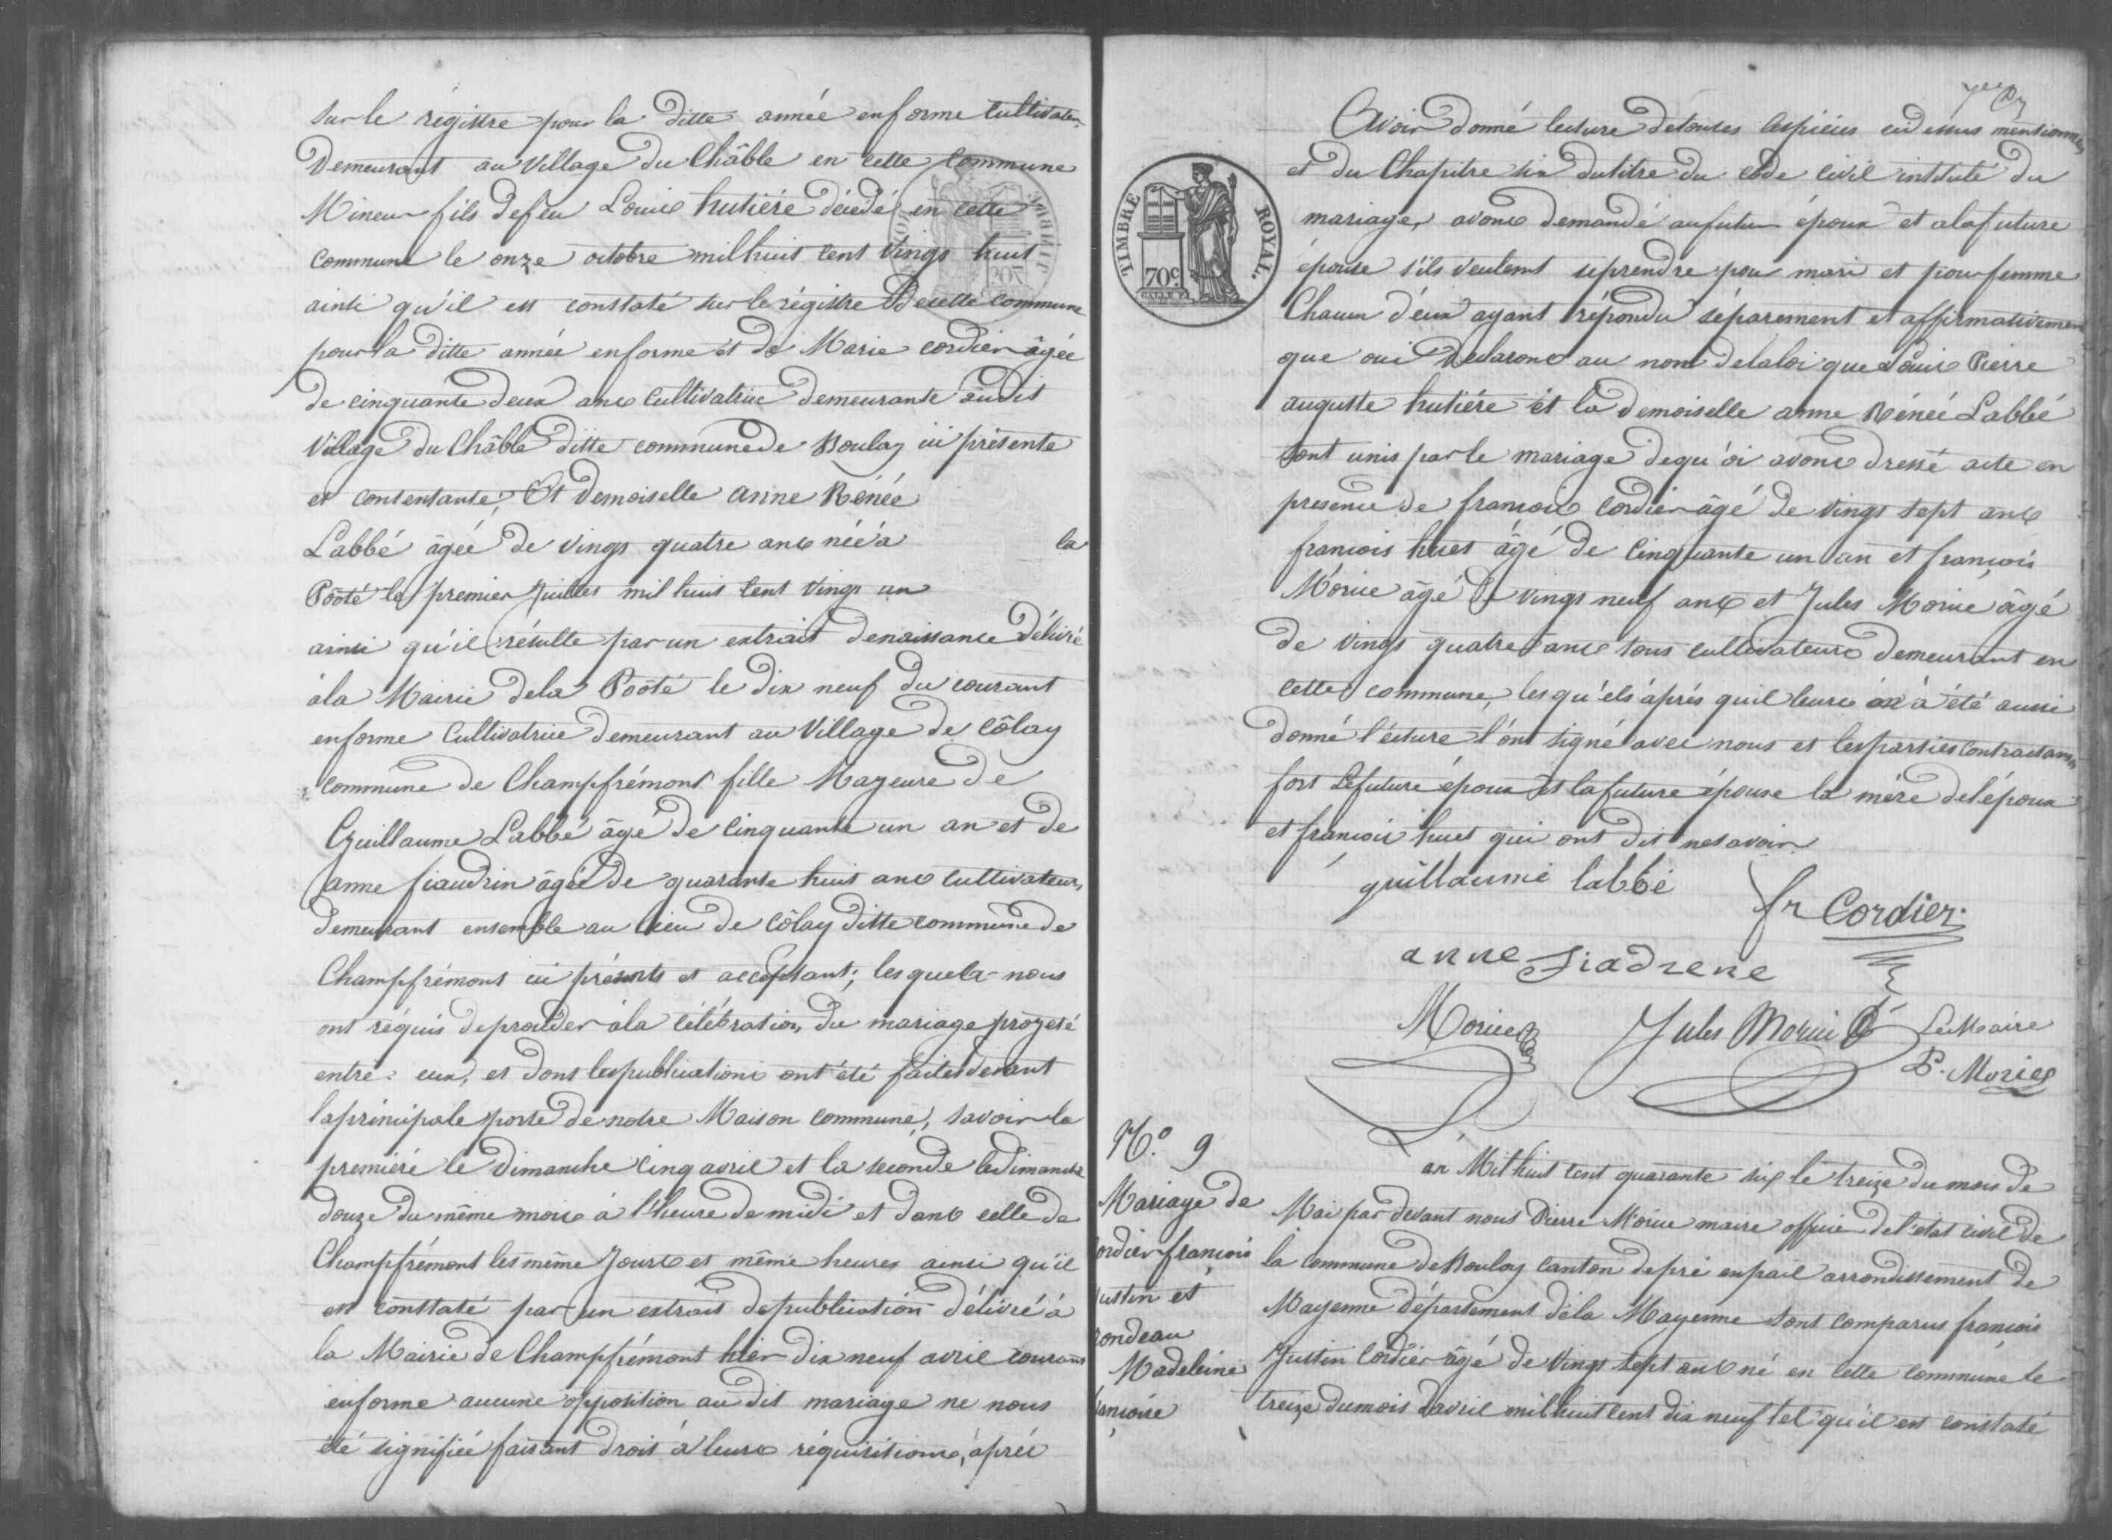 sur le régistre pour la ditte année en forme Cultivateur
Demeurant au Village du Châble en cette Commune
Mineur fils de feu Louis hutiére décédé en cette
commune le onze octobre mil huit cent vingt huit
ainsi qu'il est constaté sur le régistre De cette commune
pour la ditte année en forme et de Marie cordier âgée
de cinquante deux ans Cultivatrice demeurante audit
Village du Châble ditte commune de Boulay ici présente
et consentante; Et Demoiselle Anne Rénée
Labbé âgée de vingt quatre ans née à la
Pôoté le premier Juillet mil huit cent vingt un
ainsi qu'il résulte par un extrait de naissance délivré
à la Mairie de la Pôoté le dix neuf du courant
en forme Cultivatrice demeurant au Village de Côlay
commune de Champfrémont fille Mayeure de
Guillaume Labbé âgé de Cinquante un an et de
anne fiaudrin âgée de quarante huit ans Cultivateurs
demeurant ensemble au lieu de Côlay ditte commune de
Champfrémont ici présents et acceptant; les quels nous
ont réquis de procéder à la célébration du mariage projeté
entre eux, et dont les publications ont été faites devant
la principale porte de notre Maison commune, savoir la
premiére le Dimanche Cinq avril et la seconde le Dimanche
douze du même mois à l'heure de midi et dans celle de
Champfrémont les même Jours et même heures ainsi qu'il
est constaté par un extrait de publication délivré à
la Mairie de Champfrémont hier dix neuf avril courant
en forme aucune opposition au dit mariage ne nous
été signifiée faisant droit à leurs réquisitions, après
Avoir donné lecture de toutes les piéces ci dessus mentionnées
et du Chapitre six du titre du code civil intitulé du
mariage, avons demandé au futur époux et a la future
épouse s'ils veulent se prendre pour mari et pour femme
Chacun d'eux ayant répondu séparement et affirmativement
que oui Déclarons au nom de la loi que Louis Pierre
auguste hutiére et la demoiselle anne Rénée Labbé
sont unis par le mariage de qu'oi avons dressé acte en
presence de françois Cordier âgé de vingt sept ans
francois huet âgé de Cinquante un an et françois
Morice âgé de vingt neuf ans et Jules Morice âgé
de vingt quatre ans tous cultivateurs demeurant en
cette commune, les qu'els aprés quil leurs en à été aussi
donné l'écture l'ont signé avec nous et les parties Contractantes
fort Le future époux et la future épouse la mére de l'époux
et francois huet qui ont dit ne savoir
guillaume labbé
fr Cordier
anne fiadrene
Morice
Jules Morice
Le Maire
P. Morice
TIMBRE ROYAL
70c
No. 9
Mariage de
ordier françois
ustin et
rondeau
Madeleine
ançoise
an Mil huit cent quarante six le treize du mois de
Mai par devant nous Pierre Morice maire officier de l'état civil de
la commune de Boulay Canton de pré en pail arrondissement de
Mayenne département de la Mayenne sont comparus françois
Justin Cordier âgé de Vingt sept ans né en cette commune le
treize du mois d'avril mil huit cent dix neuf tel qu'il est constaté